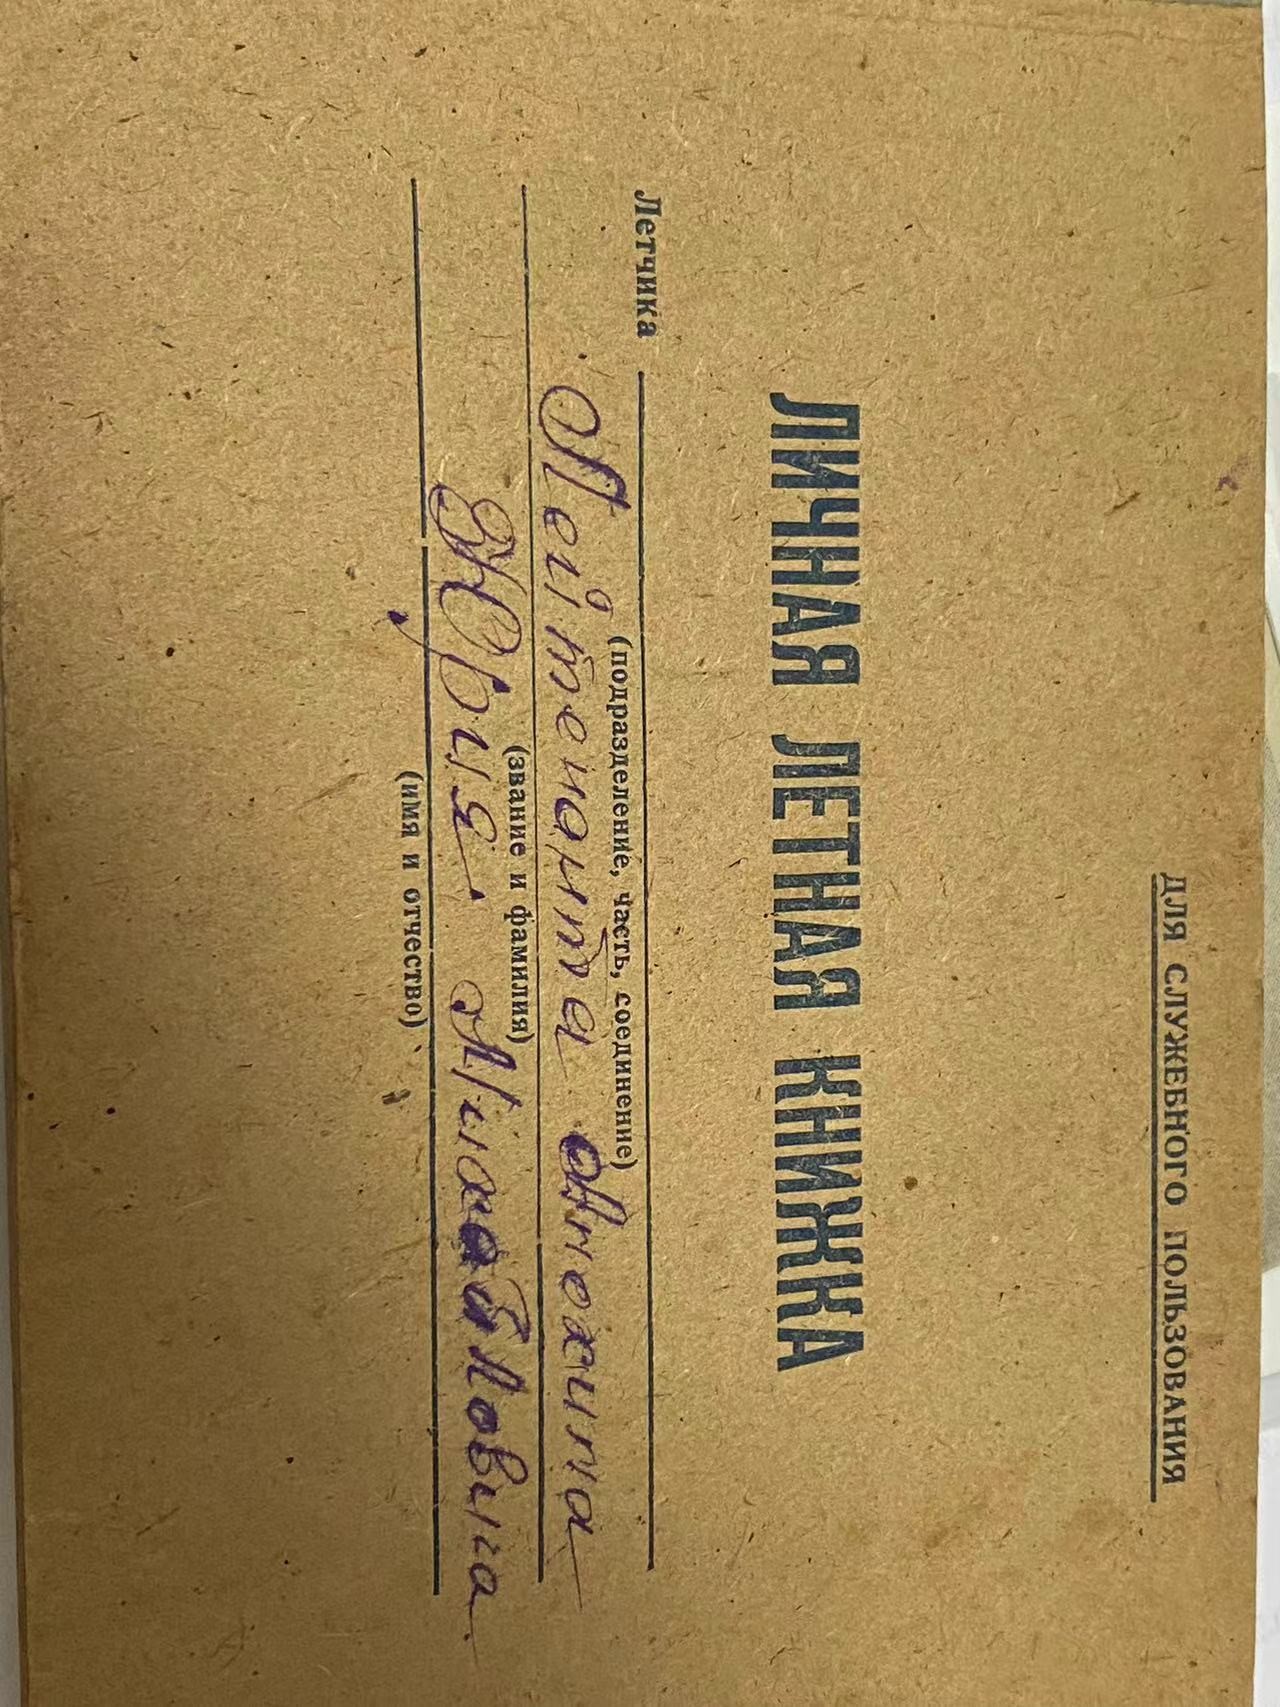 ДЛЯ СЛУЖЕБНОГО ПОЛЬЗОВАНИЯ
ЛИЧНАЯ ЛЕТНАЯ КНИЖКА
Летчика
(подразделение, часть, соединение)
Лейтенанта Анохина
(звание и фамилия)
Юрия Михайловича
(имя и отчество)